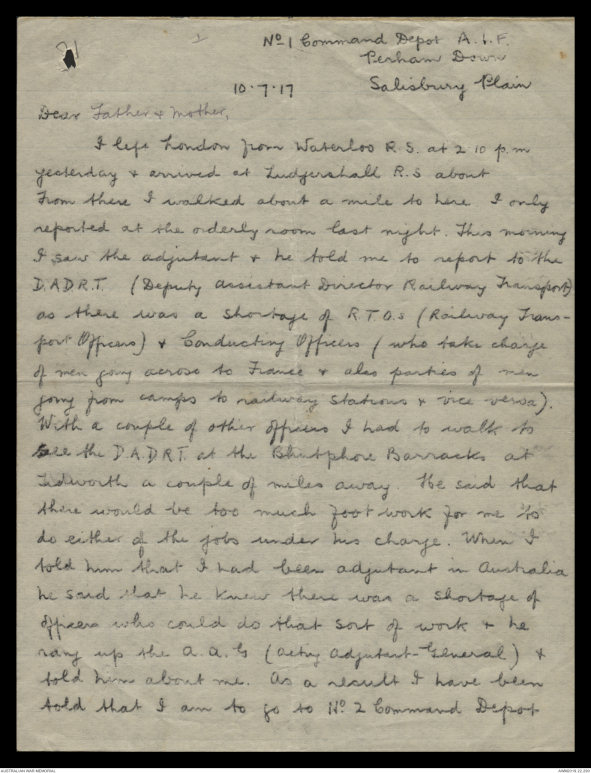 31
Nº 1 Command Depot A.I.F.
Perham Down
Salisbury Plain
10.7.17
Dear Father & Mother,
I left London from Waterloo R.S. at 2 10 p.m
yesterday & arrived at Ludgershall R.S about
From there I walked about a mile to here. I only
reported at the orderly room last night. This morning
I saw the adjutant & he told me to report to the
D.A.D.R.T. (Deputy Assistant Director Railway Transport)
as there was a shortage of R.T.O.s (Railway Trans-
port Officers) & Conducting Officers (who take charge
of men going across to France & also parties of men
going from camps to railway stations & vice versa).
With a couple of other officers I had to walk to
see the D.A.D.R.T. at the Bhurtphore Barracks at
Tidworth a couple of miles away. He said that
there would be too much foot work for me to
do either of the jobs under his charge. When I
told him that I had been adjutant in Australia
he said that he knew there was a shortage of
officers who could do that sort of work & he
rang up the A.A.G (acting Adjutant-General) &
told him about me. As a result I have been
told that I am to go to Nº 2 Command Depot
AUSTRALIAN WAR MEMORIAL